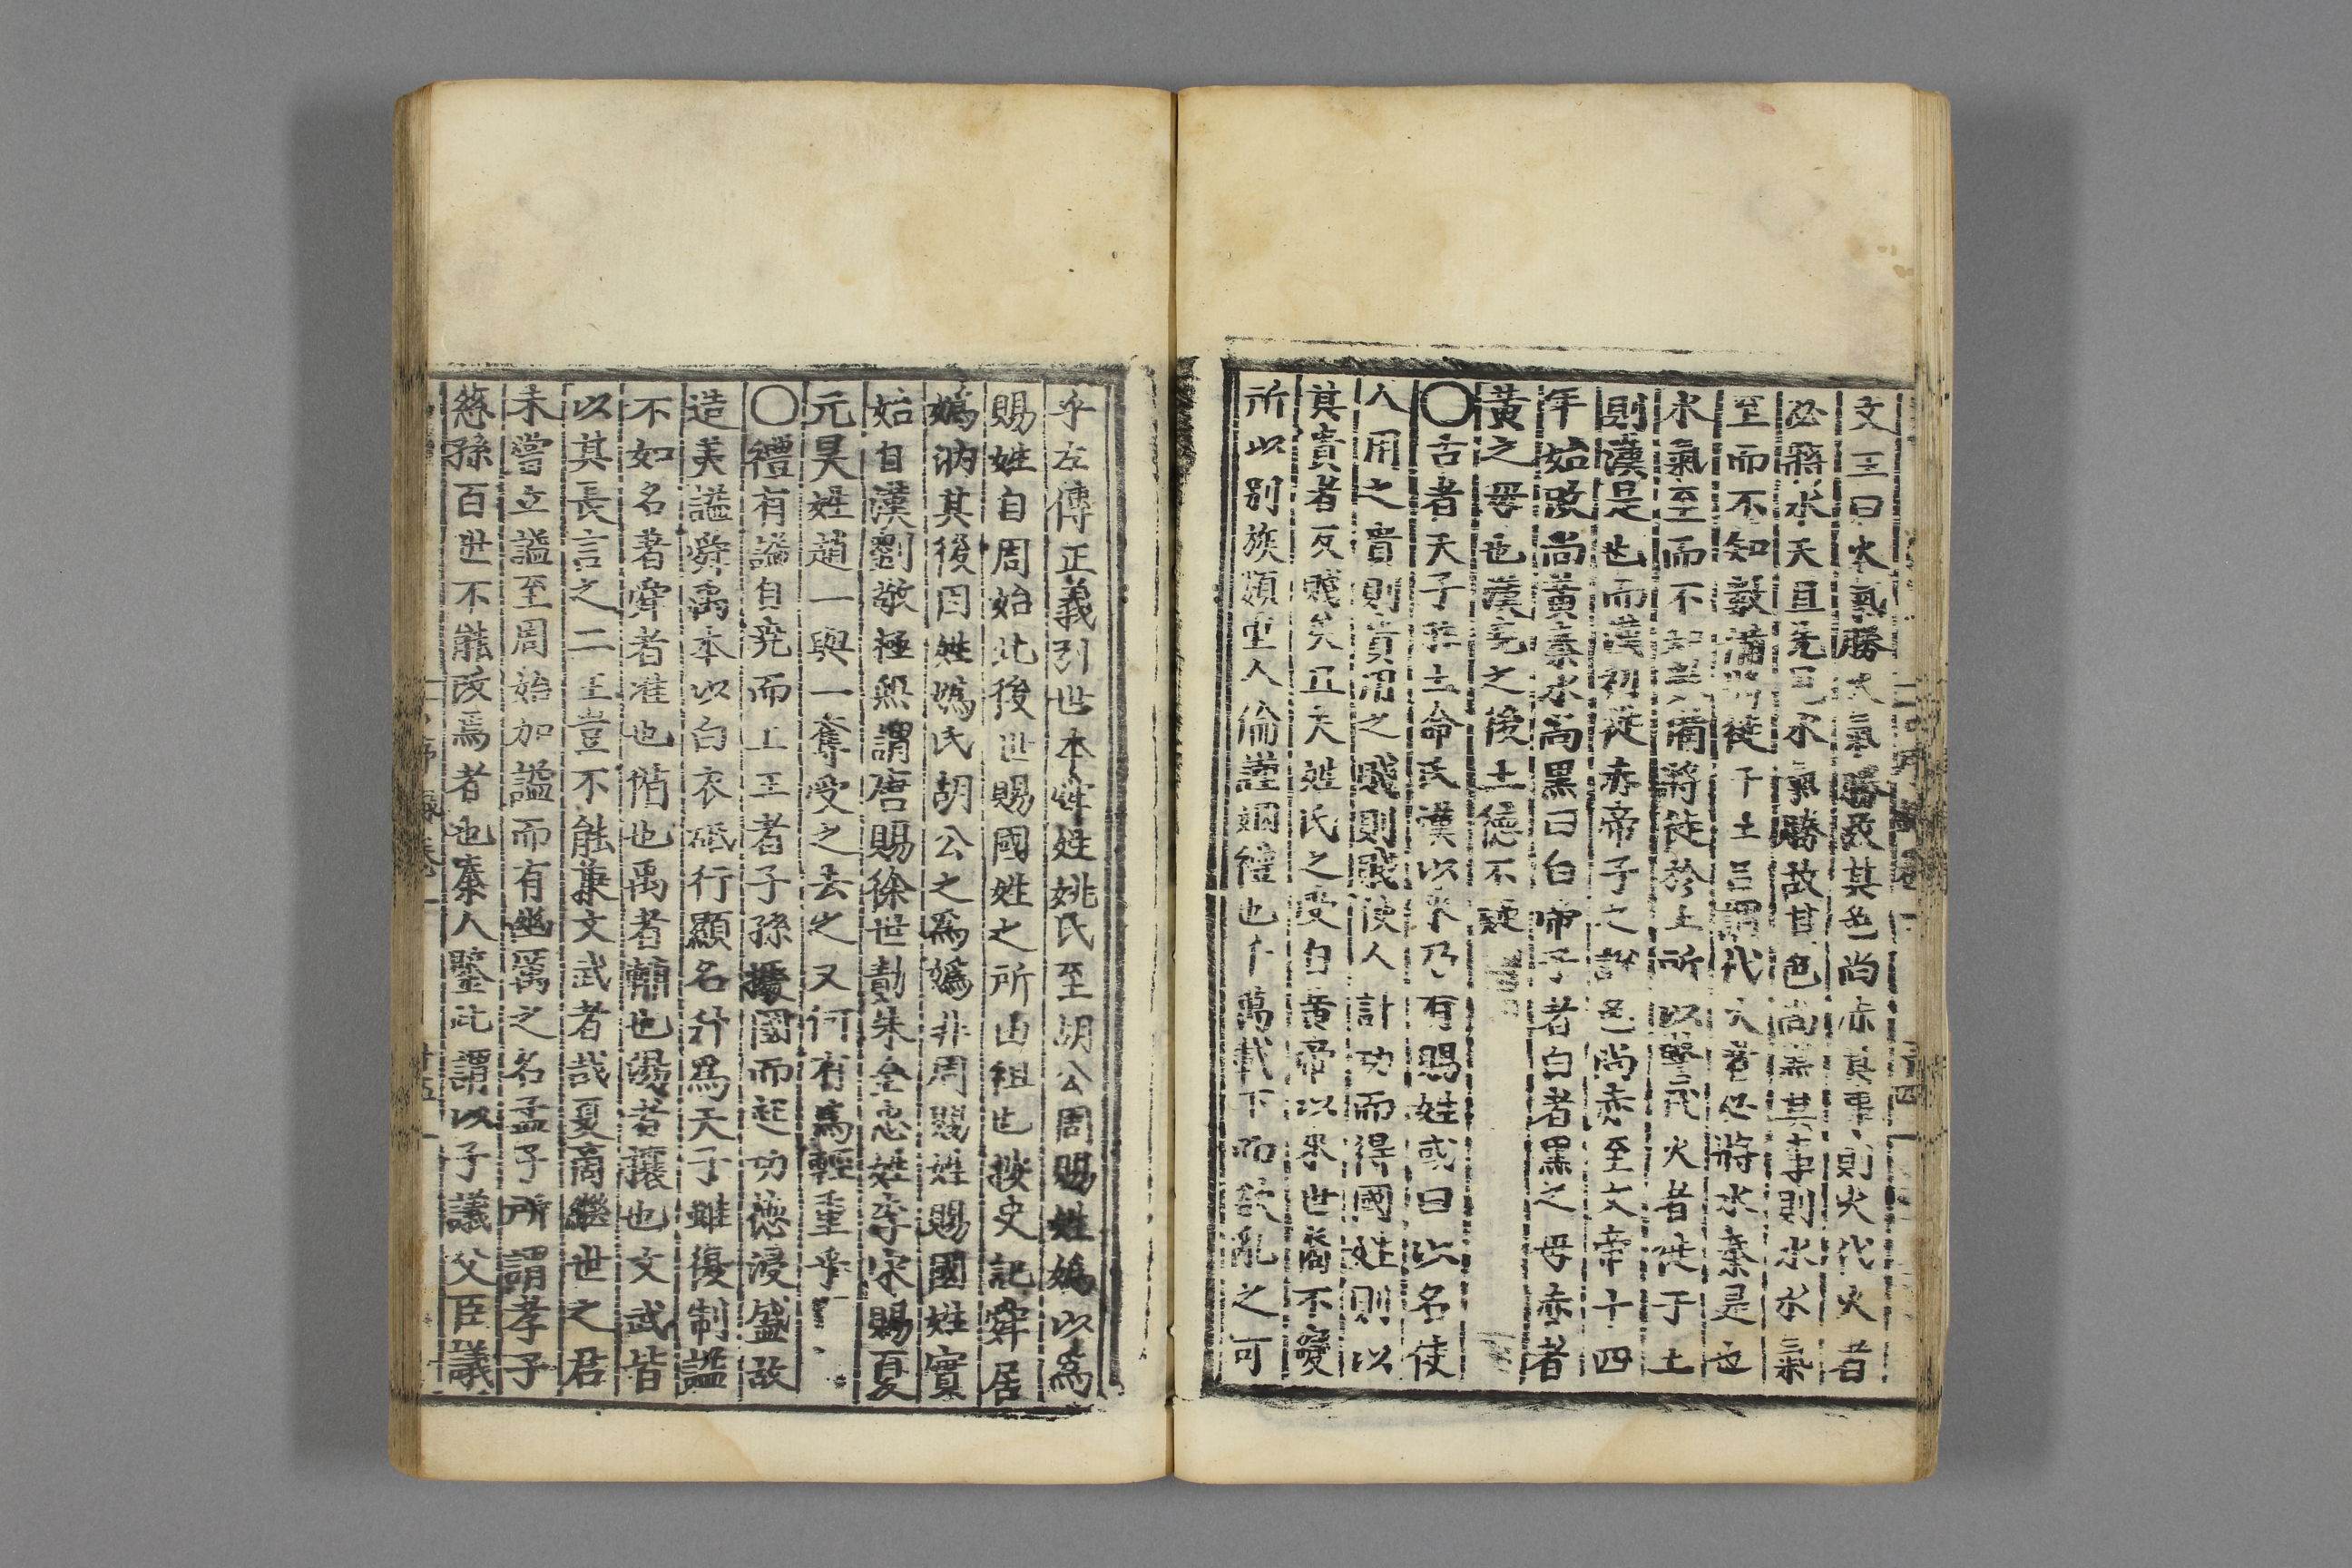 文王曰火氣勝火氣勝故其色尚赤其事則火代火者
必將水天且先見水氣勝故其色尚黑其事則水水氣
至而不知數備將徙于土呂謂代火者必將水秦是也
水氣至而不知數備將徙於土所以繫代火者徙于土
則漢是也而漢初從赤帝子之說色尚赤至文帝十四
年始改尚黃秦水尚黑曰白帝子者白者黑之母赤者
黃之母也漢堯之後土德不疑
○古者天子胙土命氏漢以來乃有賜姓或曰以名使
人用之貴則貴用之賤則賤使人計功而得國姓則以
其貴者反賤矣丘夫姓氏之受自黃帝以來世裔不變
所以別族類重人倫謹姻禮也千萬載下而欲亂之可
乎左傳正義引世本舜姓姚氏至胡公周賜姓嬀以爲
賜姓自周始此後世賜國姓之所由祖也按史記舜居
嬀汭其後因姓嬀氏胡公之爲嬀非周賜姓賜國姓實
始自漢劉敬極熙謂唐賜徐世勣朱全忠姓李宋賜夏
元昊姓趙一與一奪受之去之又何有爲輕重乎
○禮有謚自堯而上王者子孫據國而起功德浸盛故
造美謚舜禹本以白衣砥行顯名升爲天子雖復制謚
不如名著舜者准也循也禹者輔也湯者攘也文武皆
以其長言之二王豈不能兼文武者哉夏商繼世之君
未嘗立謚至周始加謚而有幽厲之名孟子所謂孝子
慈孫百世不能改焉者也秦人鑒此謂以子議父臣議